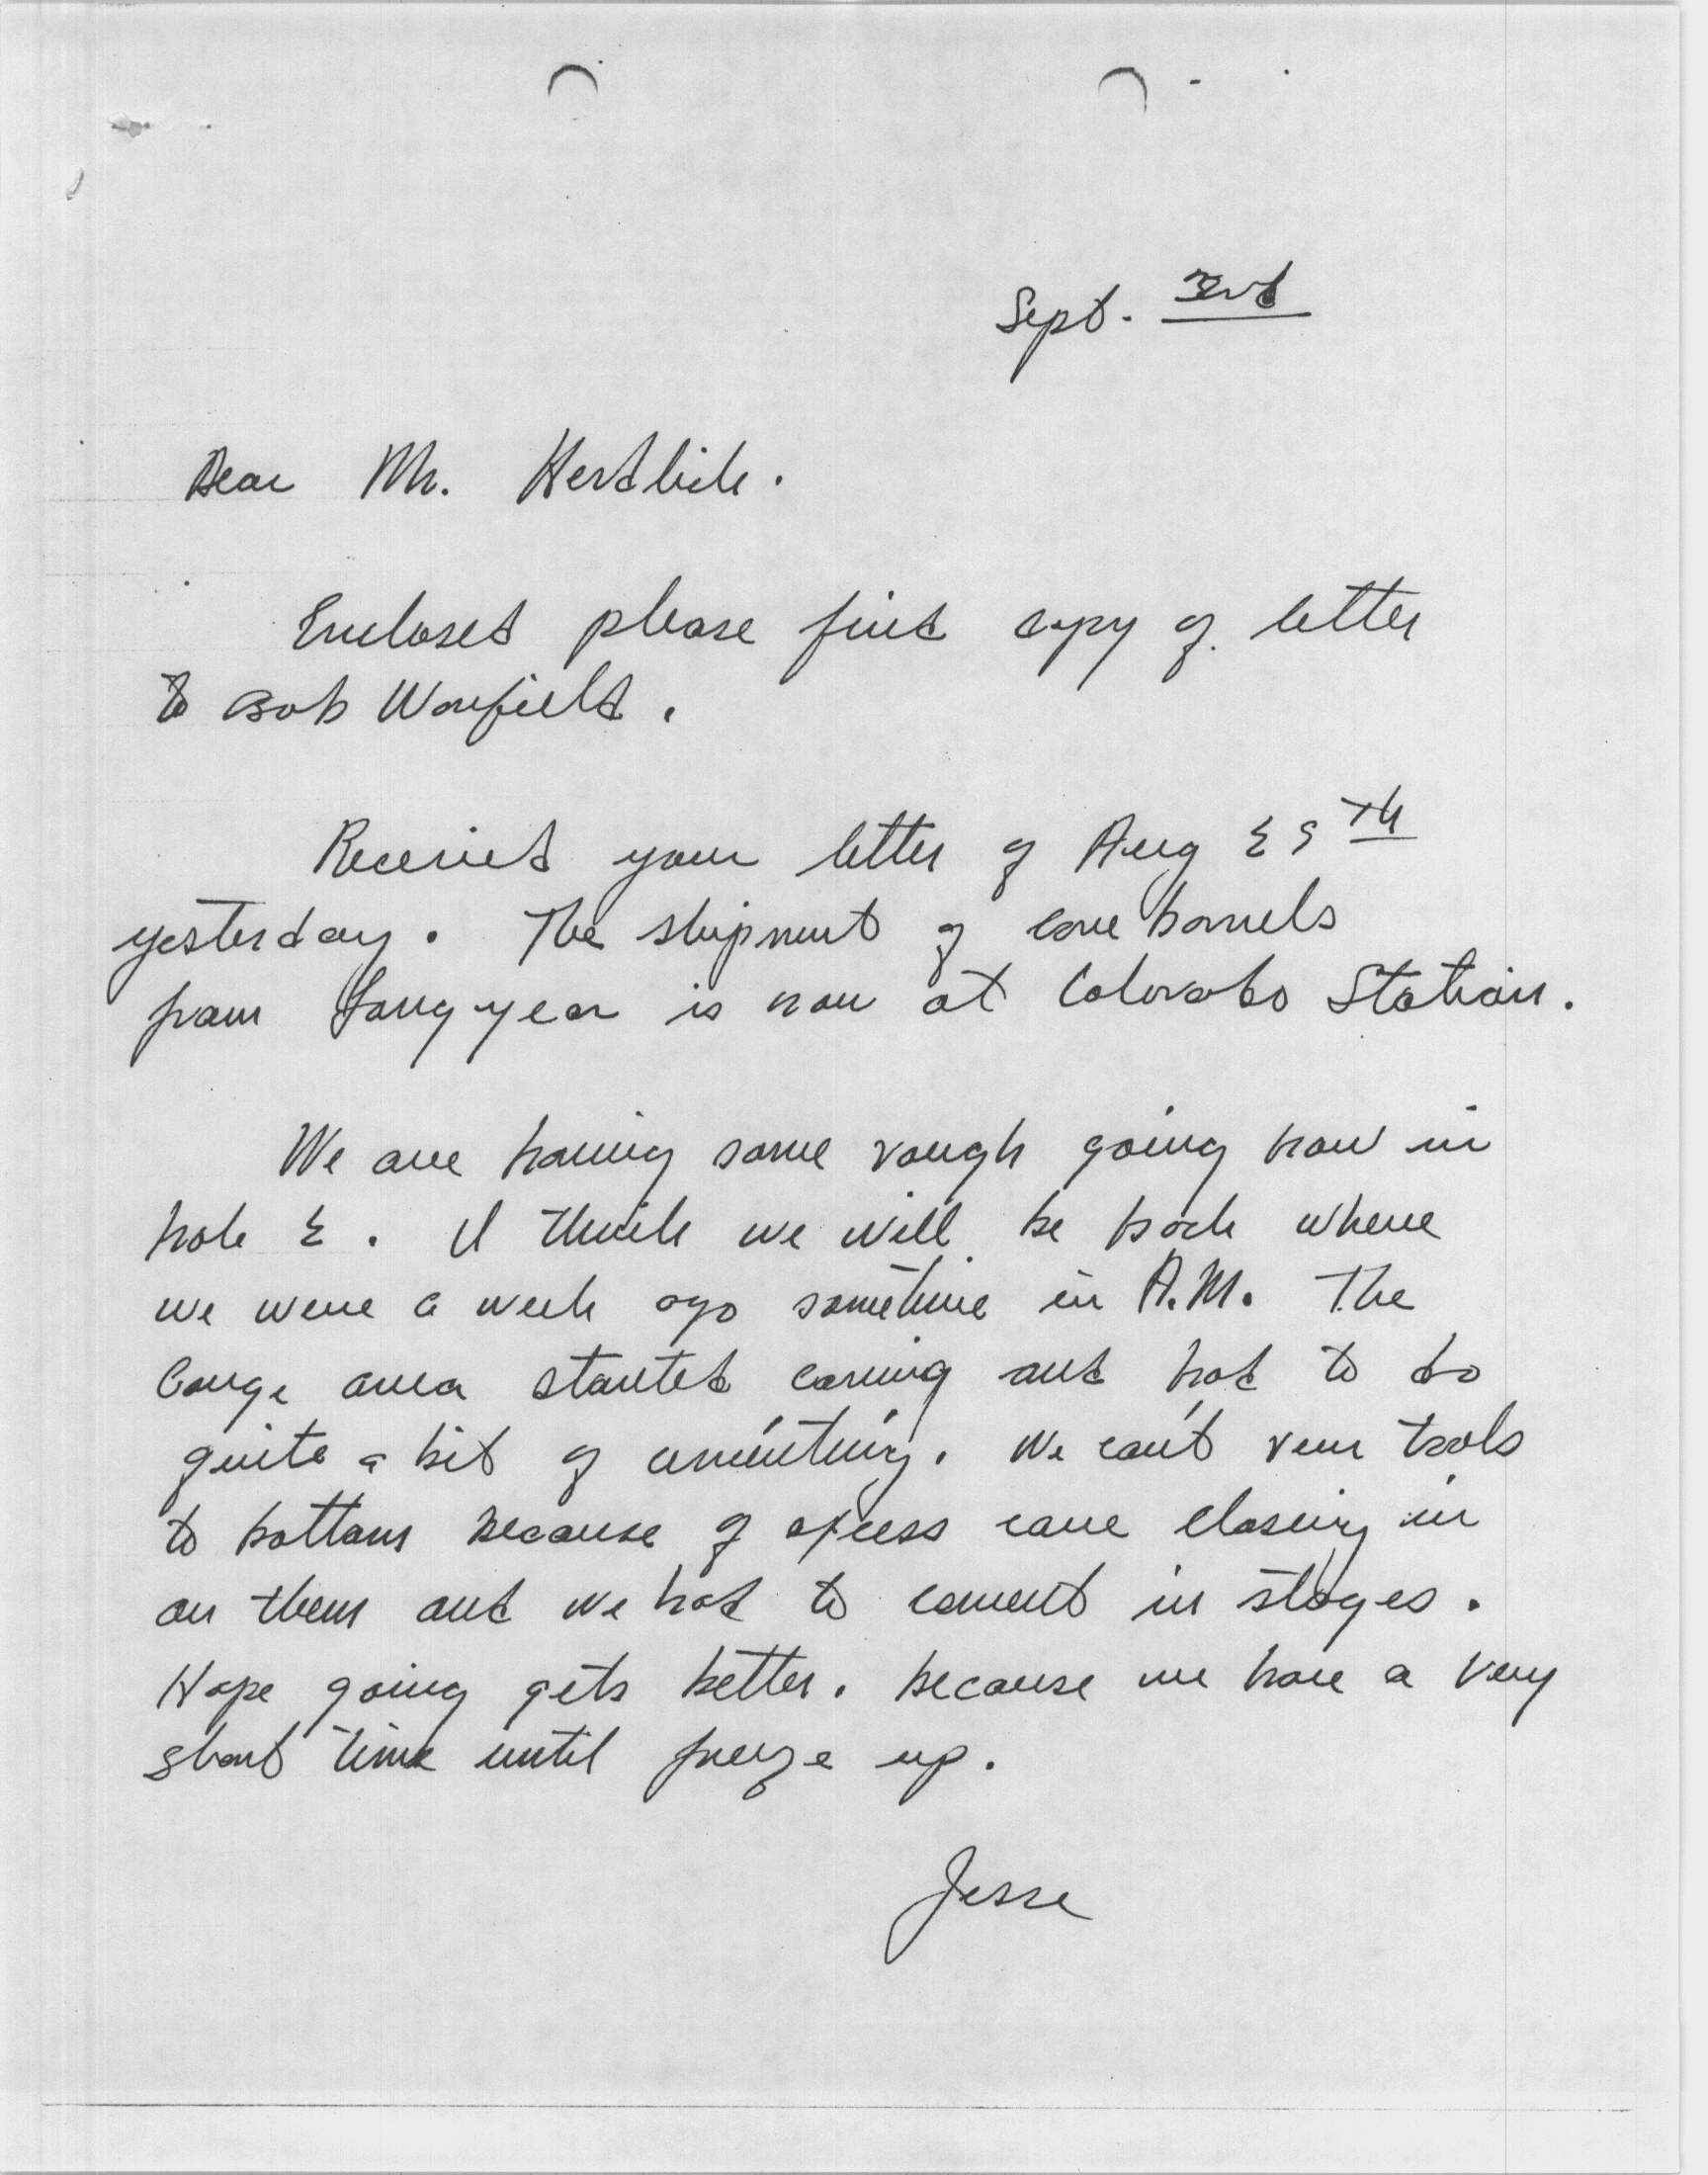 Sept. 3rd
Dear Mr. Herdlick.
Enclosed please find copy of letter
to Bob Warfield.
Received your letter of Aug 29th
yesterday. The shipment of core barrels
from Longyear is now at Colorado Station.
We are having some rough going now in
hole 2. I think we will be back where
we were a week ago sometime in A.M. The
Gouge area started caving and had to do
quite a bit of cementing. We can't run tools
to bottom because of excess cave closing in
on them and we had to cement in stages.
Hope going gets better. because we have a very
short time until freeze up.
Jesse